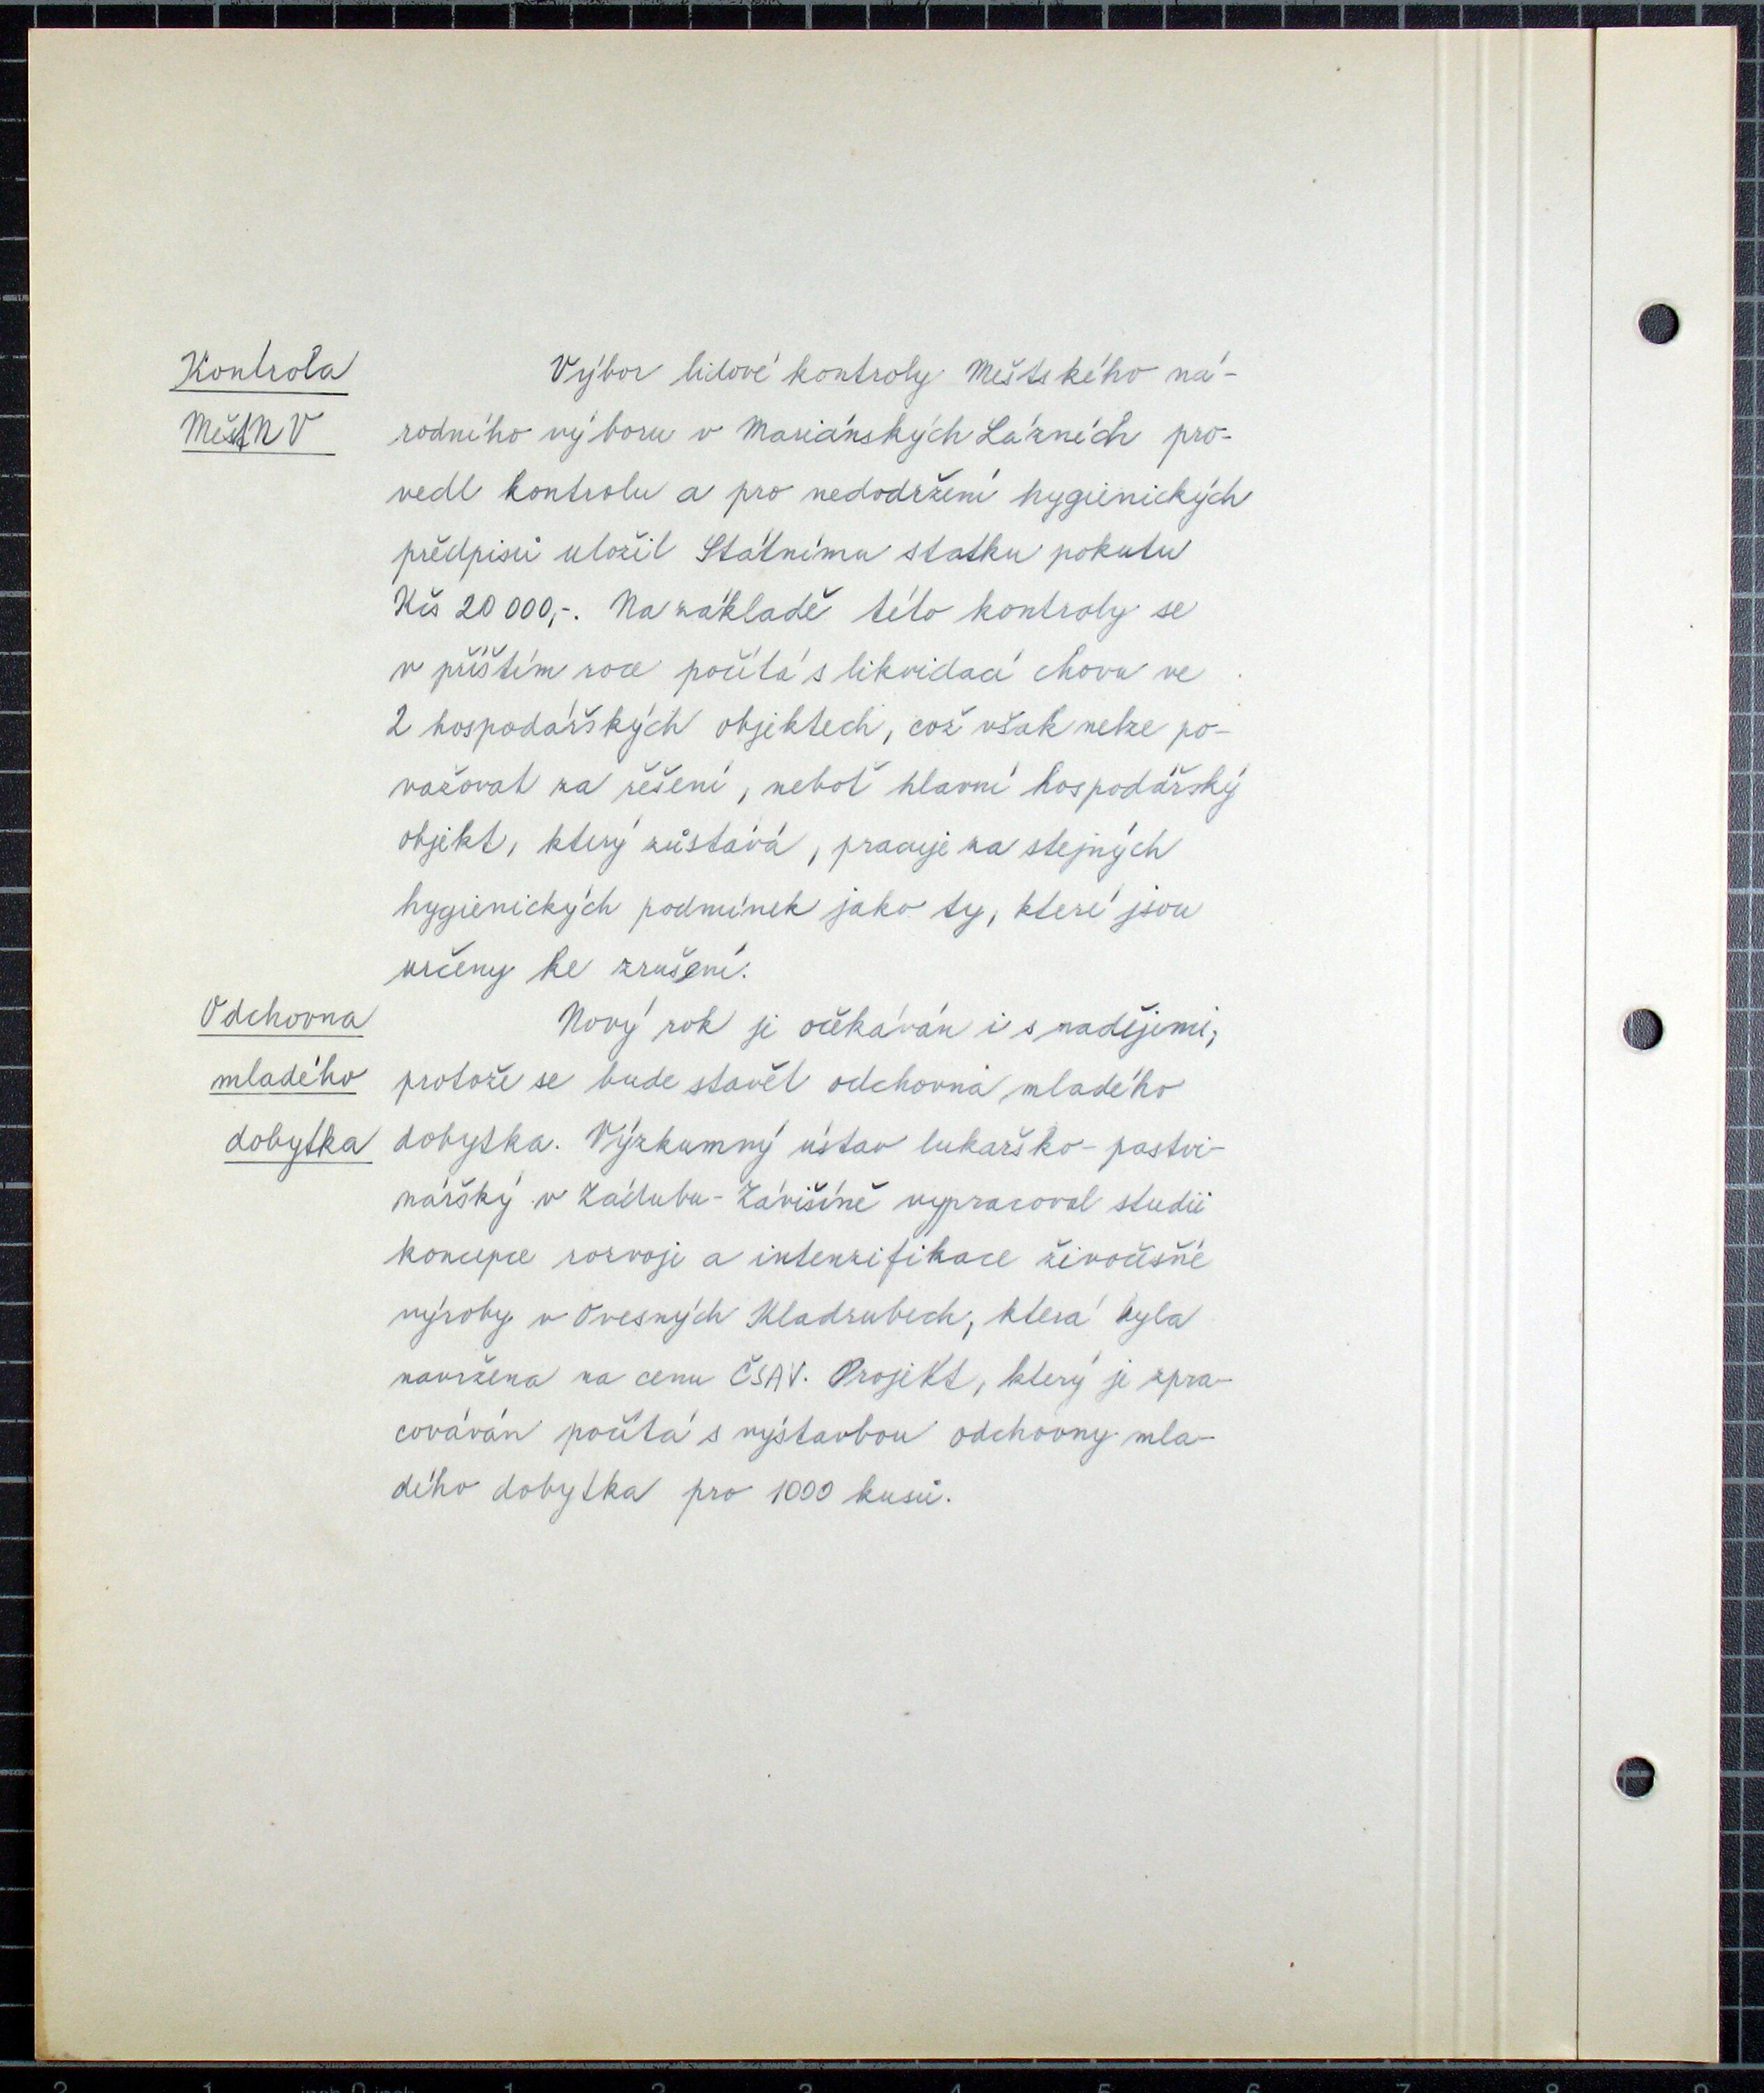 Kontrola
MěstNV
Výbor lidové kontroly Městského ná-
rodního výboru v Mariánských Lázních pro-
vedl kontrolu a pro nedodržení hygienických
předpisů uložil Státnímu statku pokutu
Kčs 20 000,-. Na základě této kontroly se
v příštím roce počítá s likvidací chovu ve
2 hospodářských objektech, což však nelze po-
važovat za řešení, neboť hlavní hospodářský
objekt, který zůstává, pracuje za stejných
hygienických podmínek jako ty, které jsou
určeny ke zrušení.
Odchovna
mladého
dobytka
Nový rok je očekáván i s nadějemi,
protože se bude stavět odchovna mladého
dobytka. Výzkumný ústav lukařsko-pastvi-
nářský v Zádubu-Závišíně vypracoval studii
koncepce rozvoje a intenzifikace živočišné
výroby v Ovesných Kladrubech, která byla
navržena na cenu ČSAV. Projekt, který je zpra-
cováván počítá s výstavbou odchovny mla-
dého dobytka pro 1000 kusů.